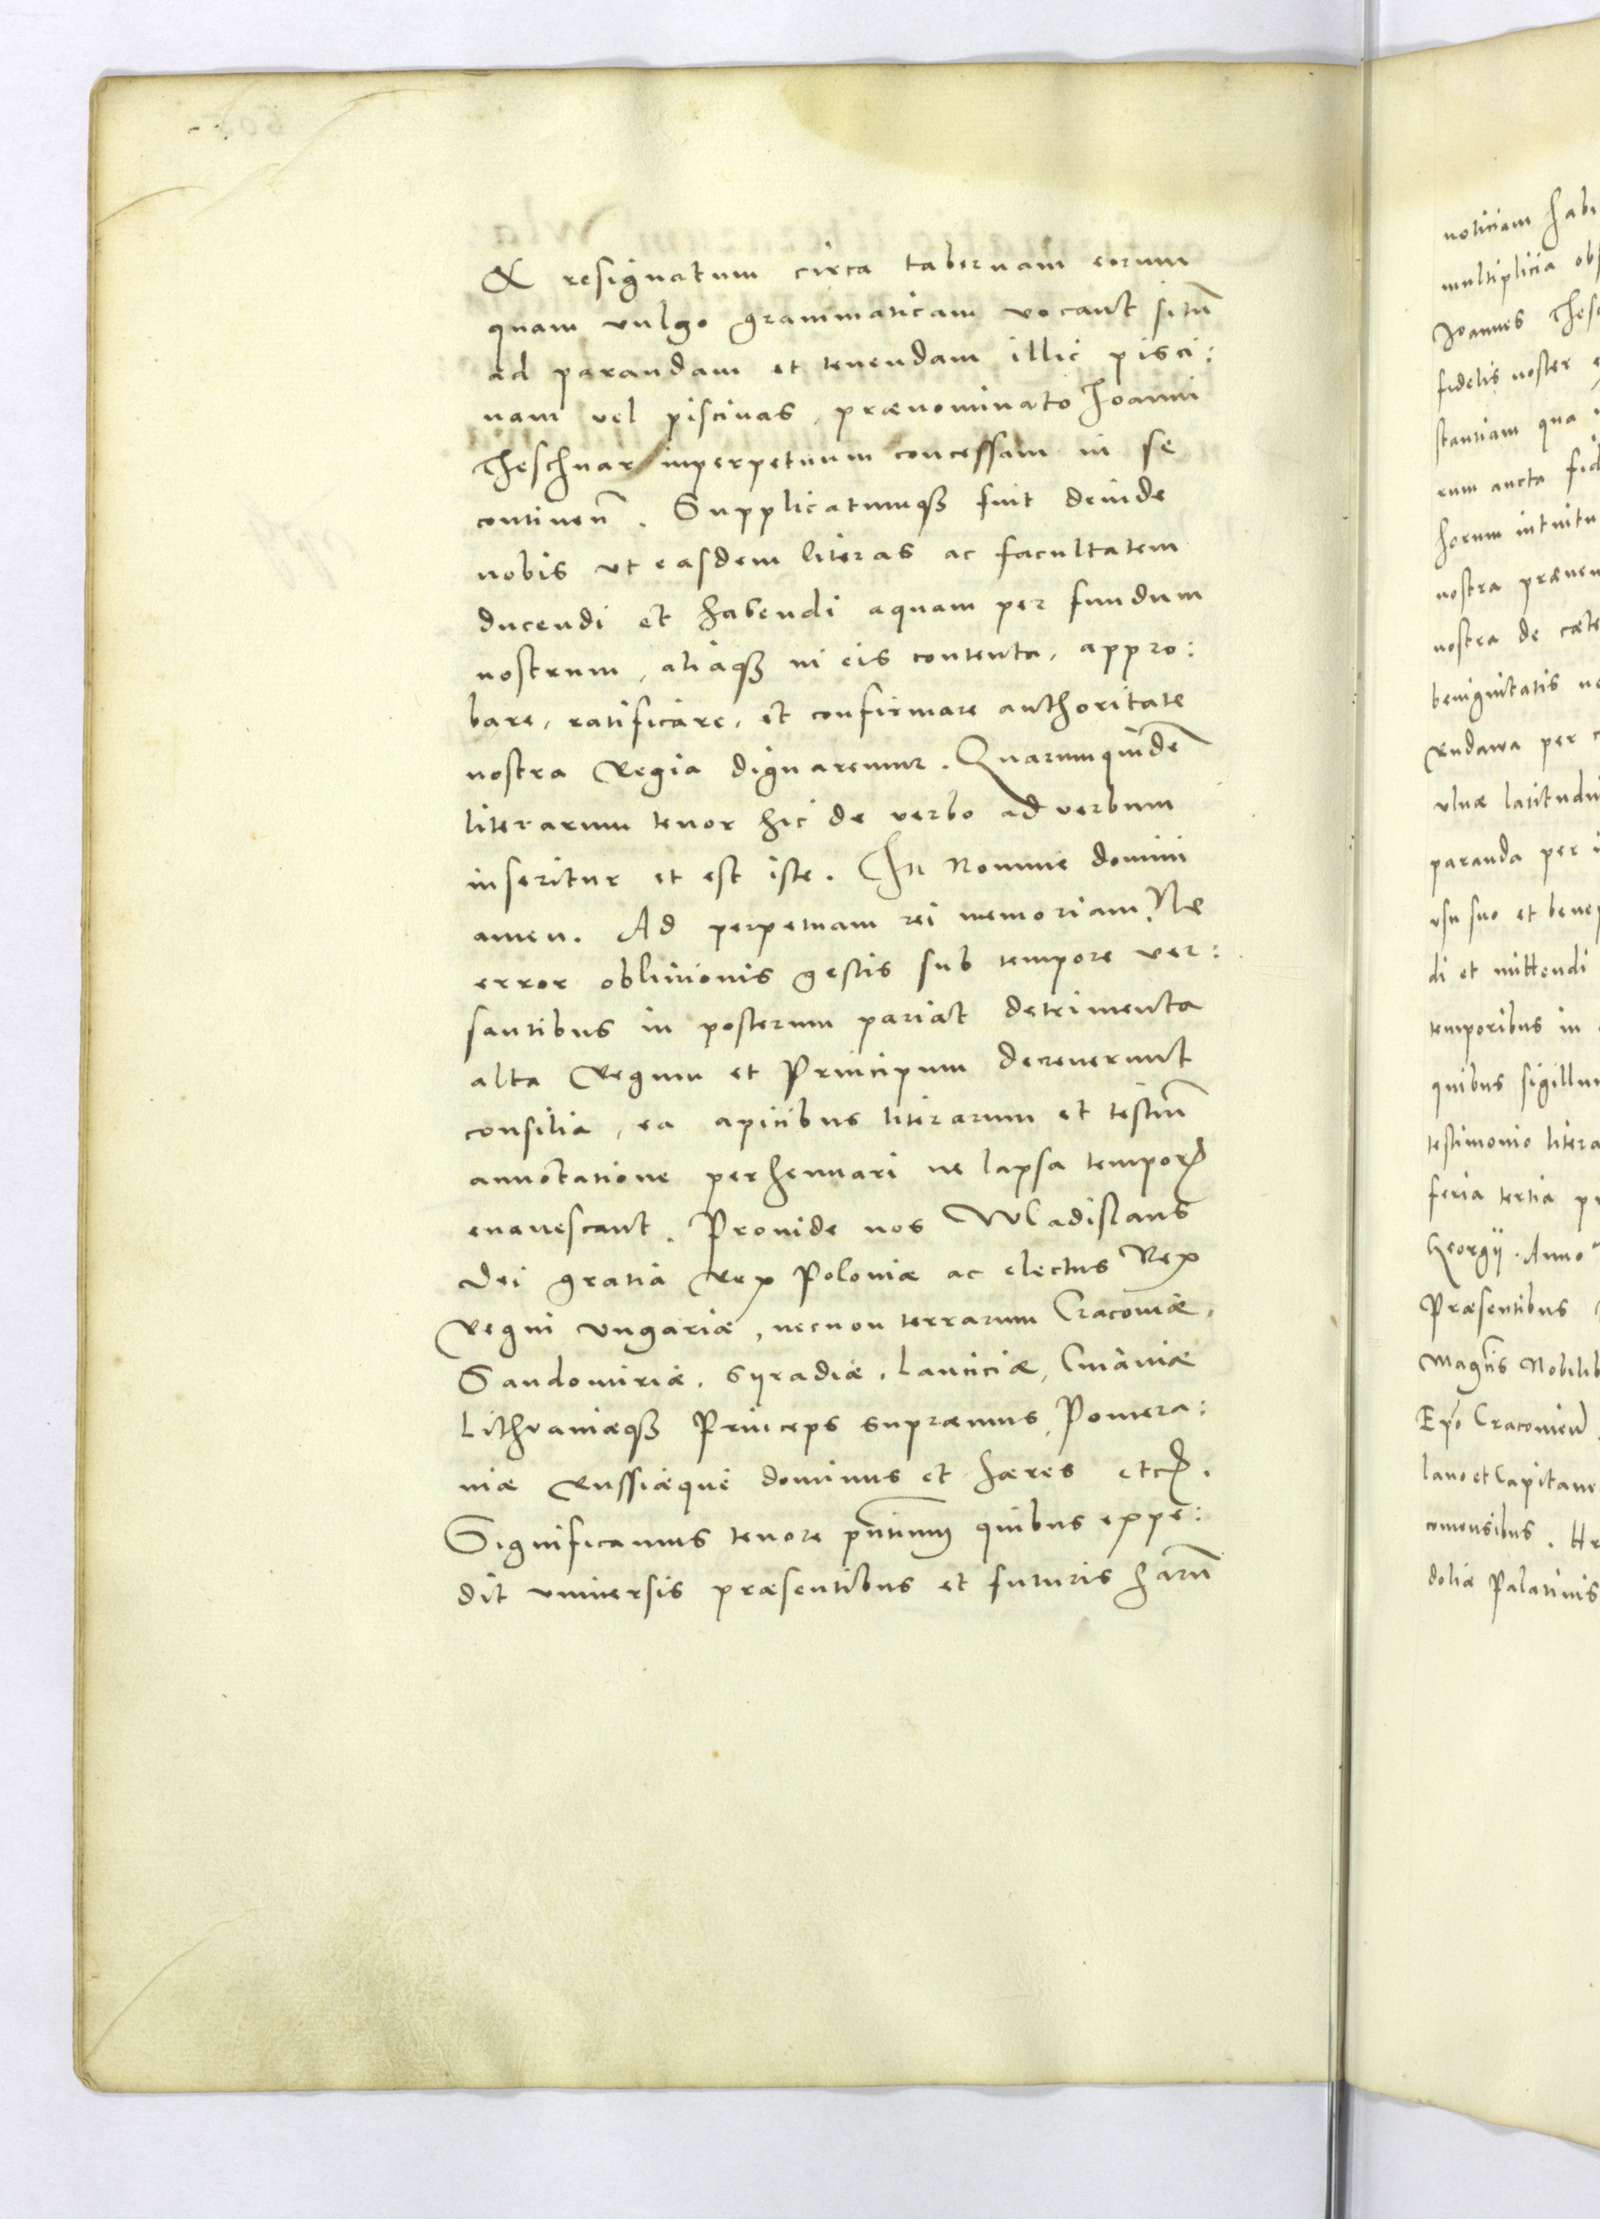 & resignatum circa tabernam eorum
quam vulgo grammaticam vocant sitũ
ad parandam et tenendam illic pisci:
nam vel piscinas, prænominato Joanni
Theschnar inperpetuum concessam in se
continen̄. Supplicatumqȝ fuit deinde
nobis vt easdem literas ac facultatem
ducendi et habendi aquam per fundum
nostrum, aliaqȝ in eis contenta, appro:
bare, ratificare, et confirmare authoritate
nostra Regia dignaremur. Quarumquidẽ
literarum tenor hic de verbo ad verbum
inseritur et est iste. In Nomine domini
amen. Ad perpetuam rei memoriam. Ne
error obliuionis gestis sub tempore ver:
santibus in posterum pariat detrimenta
alta Regum et Principum decreuerunt
consilia, ea apicibus literarum et testiũ
annotatione perhennari ne lapsa temporꝭ
euanescant. Prouide nos Wladislaus
Dei gratia Rex Poloniæ ac electus Rex
Regni vngariæ, necnon terrarum Cracouiæ,
Sandomiriæ, Syradiæ, Lanciciæ, Cuiauiæ
Lithvaniæqȝ Princeps supræmus, Pomera:
niæ Russiæque dominus et hæres etcꝭ.
Significamus tenore pñtium quibus expe:
dit vniuersis præsentibus et futuris harũ
noticiam habi
multiplicia obs
Joannes Thesc
fidelis noster e
stantiam qua
rum aucta fid
horum intuitu
nostra præuen
nostra de cæte
benignitatis
Rudawa per c
vlnæ latitudi
paranda per i
vsu suo et bene
di et mittendi
temporibus in
quibus sigillu
testimonio litera
feria tertia pr
Georgij. Anno
Præsentibus
Mag̃cis Nobilib
Ep̃o Cracouien̄
lano et Capitane
comensibus. He
doliæ Palatinis